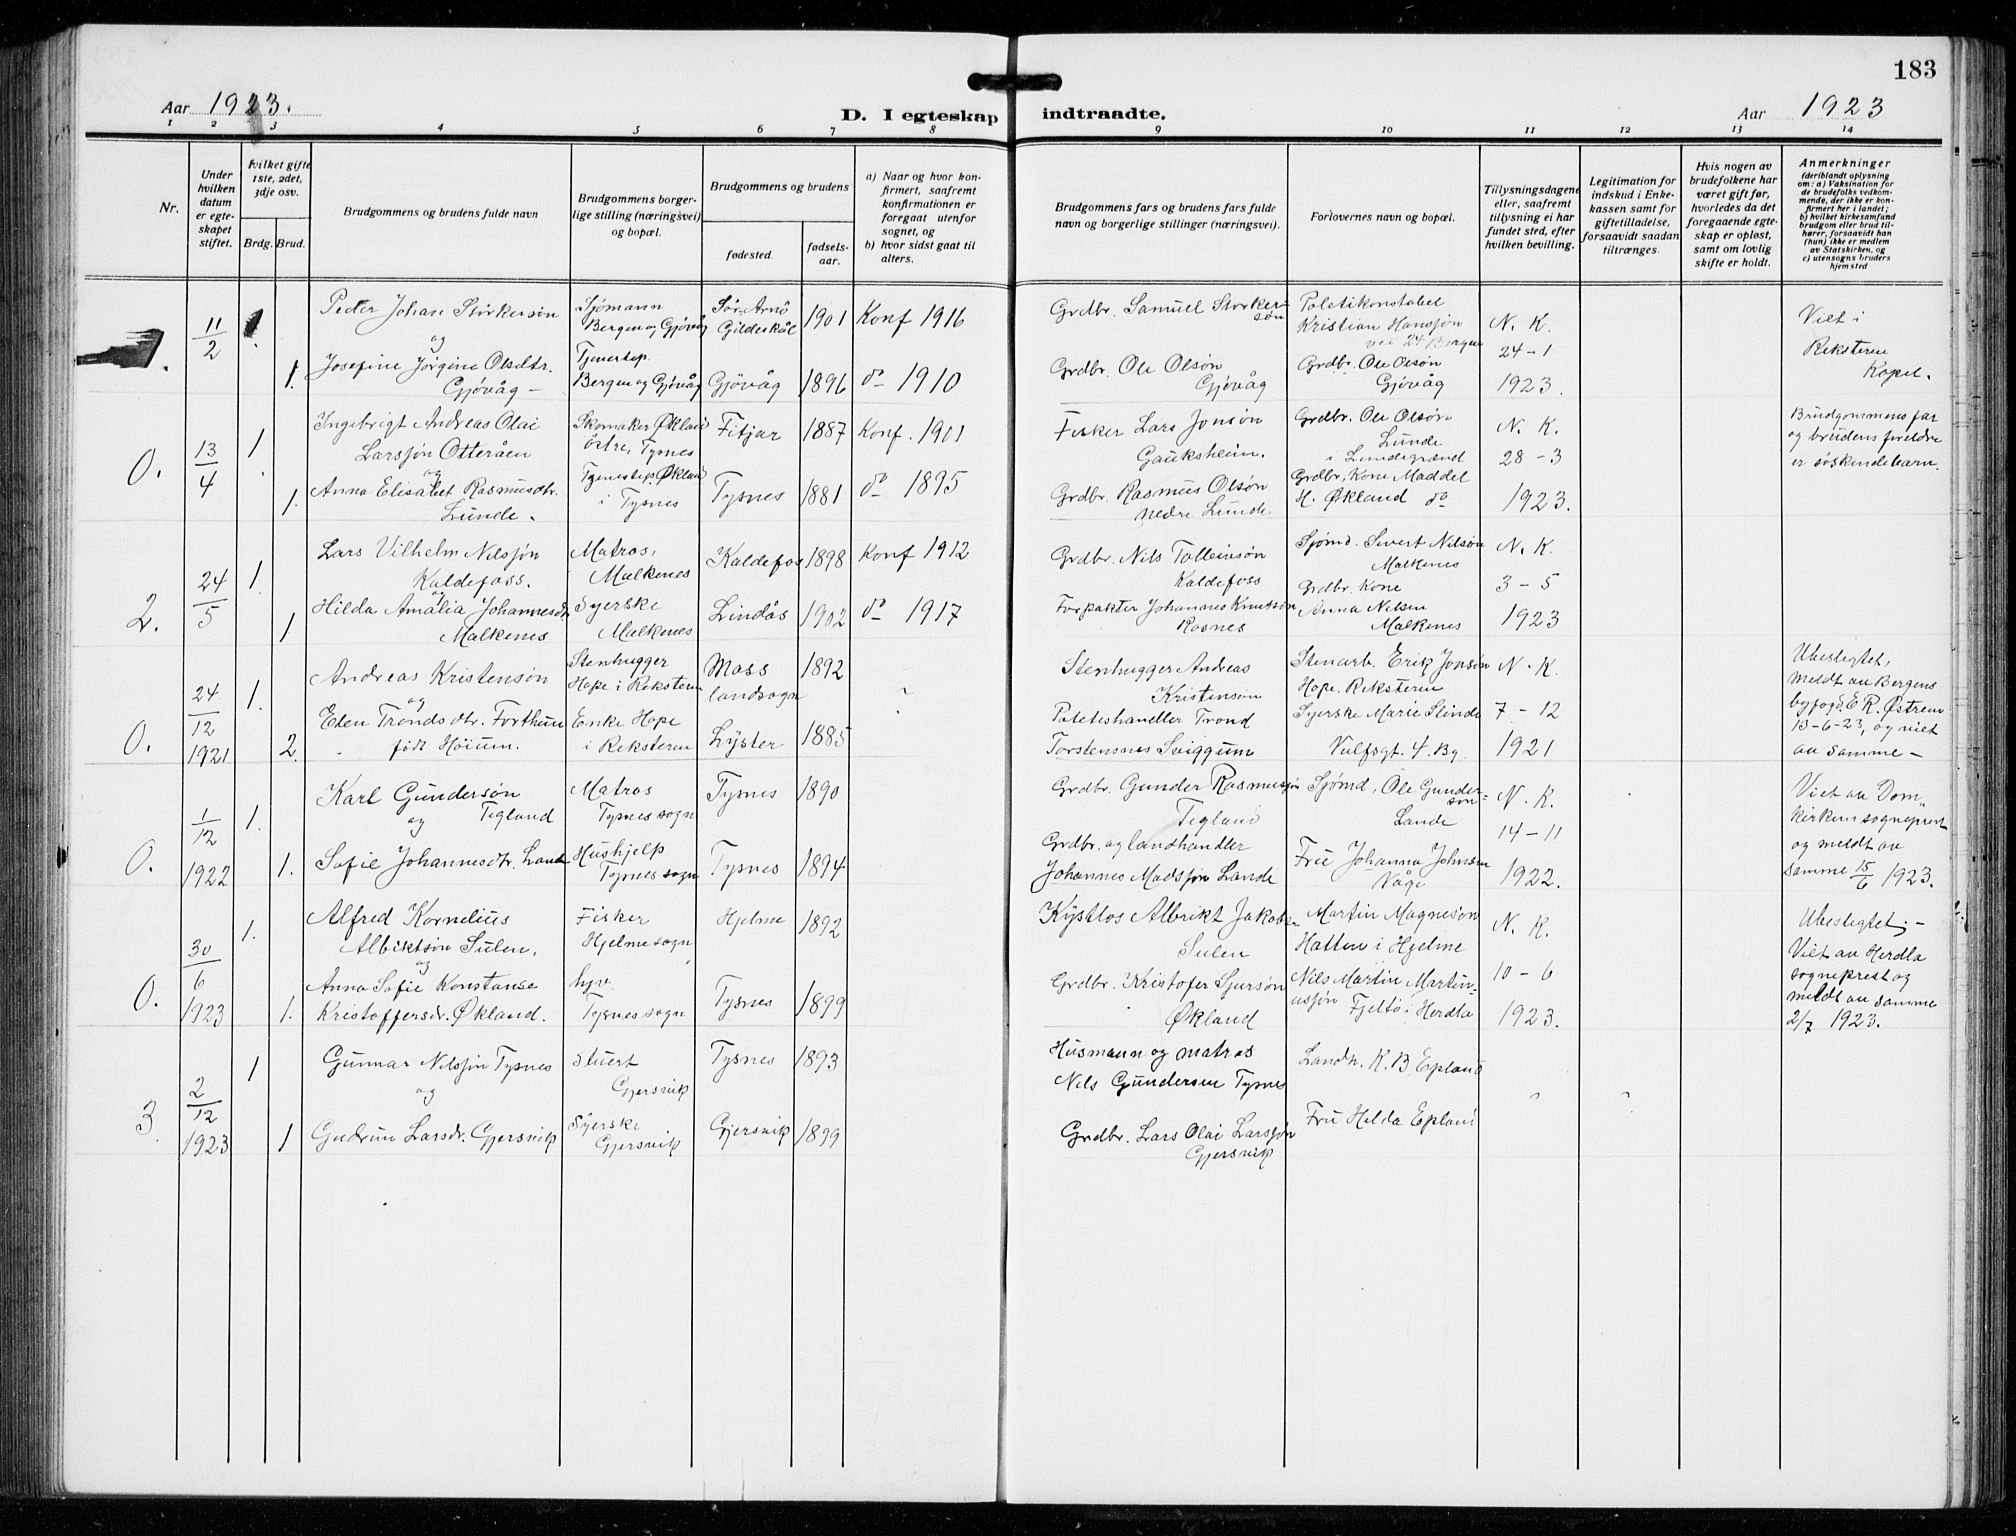 183
Aar 1923.
D. I egteskap indtraadte.
Aar 1923
1 2 3 4 5 6 7 8 9 10 11 12 13 14
Nr.
Under hvilken datum er egteskapet stiftet.
Hvilket gifte 1ste, 2det, 3dje osv.
Brdg. Brud.
Brudgommens og brudens fulde navn
Brudgommens borgerlige stilling (næringsvei) og bopæl.
Brudgommens og brudens
fødested.
fødselsaar.
a) Naar og hvor konfirmert, saafremt konfirmationen er foregaat utenfor sognet, og
b) hvor sidst gaat til alters.
Brudgommens fars og brudens fars fulde navn og borgerlige stillinger (næringsvei).
Forlovernes navn og bopæl.
Tillysningsdagene eller, saafremt tillysning ei har fundet sted, efter hvilken bevilling.
Legitimation for indskud i Enkekassen samt for giftetilladelse, forsaavidt saadan tiltrænges.
Hvis nogen av brudefolkene har været gift før, hvorledes da det foregaaende egteskap er opløst, samt om lovlig skifte er holdt.
Anmerkninger (deriblandt oplysning om: a) Vaksination for de brudefolks vedkommende, der ikke er konfirmert her i landet; b) hvilket kirkesamfund brudgom eller brud tilhører, forsaavidt han (hun) ikke er medlem av Statskirken, og c) utensogns bruders hjemsted
1. 11/2
Peder Johan Storkersøn
og
1. Josefine Jørgine Olsdtr.
Gjøvåg -
Sjømann
Bergen og Gjøvåg
Tjenestep.
Bergen og Gjøvåg
Sør-Arnø
Gildeskål 1901 Konf 1916
Gjøvåg 1896 do 1910
Grdbr. Samuel Storkersøn
Grdbr. Ole Olsøn
Gjøvåg
Politikonstabel
Kristian Hansjøn
vei 24 Bergen
Grdbr. Ole Olsøn
Gjøvåg
N. K.
24-1
1923.
Viet i
Reksteren
Kapel.
0. 13/4 1
Ingebrigt Andreas Olai
Larsjøn Otteråen
og
1. Anna Elisabet Rasmusdtr.
Lunde.
Skomaker Økland
östre, Tysnes
Tjenestep. Økland
i Tysnes
Fitjar 1887 Konf. 1901
Tysnes 1881 do 1895
Fisker Lars Jonsøn
Gauksheim.
Grdbr. Rasmus Olsøn
nedre Lunde
Grdbr. Ole Olsøn
Lunde
i Lundegrænd
Grdbr. Kone Maddel
H. Økland do
N. K.
28-3
1923.
Brudgommens far
og brudens foreldre
er søskendebarn.
2. 24/5 1.
Lars Vilhelm Nilsjøn
Kaldefoss.
og
1 Hilda Amalia Johannesdr
Malkenes
Matros,
Malkenes
Syerske
Malkenes
Kaldefos 1898 Konf 1912
Lindås 1902 do 1917
Grdbr. Nils Tolleivsøn
Kaldefoss
Forpakter Johannes Knutsøn
Rosnes
Sjømd. Sivert Nilsøn
Malkenes
Grdbr. Kone
Anna Nilsen
Malkenes
N. K.
3-5
1923
0. 24/12 1921 1.
Andreas Kristensøn
og
2. Eten Trondsdtr. Forthun
født Høium.
Stenhugger
Hope i Reksteren
Enke Hope
i Reksteren
Moss
landsogn 1892
Lyster 1885
Stenhugger Andreas
Kristensøn
Potetishandler Trond
Torstensnes Sviggum
Stenarb. Erik Jonsøn
Hope. Reksteren
Syerske Marie Slinde
Vulfsgt. 4. Bg
N. K.
7-12
1921
Ubeslegtet,
meldt av Bergens
bygfogd. E R. Østrem
13-6-23, og viet
av samme -
0. 1/12 1922 1.
Karl Gundersøn
og Tegland
1. Sofie Johannesdtr. Lande
Matros
Tysnes sogn
Hushjelp
Tysnes sogn
Tysnes 1890
Tysnes 1894
Grdbr. Gunder Rasmusjøn
Tegland
Grdbr. og landhandler
Johannes Madsjøn Lande
Sjømd. Ole Gundersøn
Lande
Fru Johanna Johnsen
Våge
N. K.
14-11
1922.
Viet av Domkirkens sogneprest
og meldt av
samme 15/6 1923.
0. 30/6 1923 1.
Alfred Kornelius
Albriktsøn Sulen.
og
Anna Sofie Konstanse
1. Kristoffersdr. Økland.
Fisker
Hjelme sogn
hjv.
Tysnes sogn
Hjelme 1892
Tysnes 1899
Kystlos Albrikt Jakobs
Sulen
Grdbr. Kristofer Sjursøn
Økland
Martin Magnesøn
Hatten i Hjelme
Nils Martin Martinusjøn
Fjeltø i Herdla
N. K.
10-6
1923.
Ubeslegtet; -
Viet av Herdla
sogneprest og
meldt av samme
2/7 1923.
3. 2/12 1923 1
Gunnar Nilsjøn Tysnes
og
1 Gudrun Larsdr. Gjersvik
Stuert
Gjersvik
Syerske
Gjersvik
Tysnes 1893
Gjersvik 1899
Husmann og matros
Nils Gundersen Tysnes
Grdbr. Lars Olai Larsjøn
Gjersvik
Landh. K. B. Epland
Fru Hilda Epland